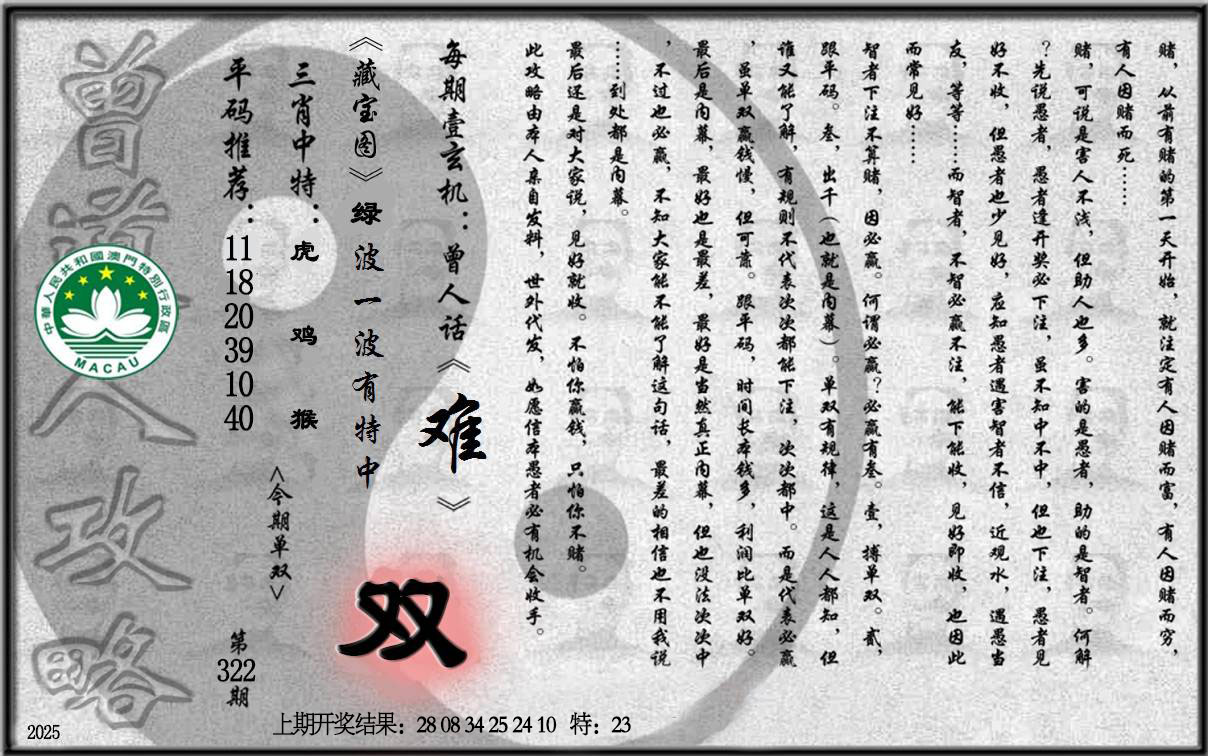 赌，从前有赌的第一天开始，就注定有人因赌而富，有人因赌而穷，
有人因赌而死……
赌，可说是害人不浅，但助人也多。害的是愚者，助的是智者。何解
？先说愚者，愚者逢开奖必下注，虽不知中不中，但也下注，愚者见
好不收，但愚者也少见好，应知愚者遇害智者不信，近观水，遇愚当
友，等等……而智者，不智必赢不注，能下能收，见好即收，也因此
而常见好……
智者下注不算赌，因必赢。何谓必赢？必赢有叁。壹，搏单双。贰，
跟平码。叁，出千（也就是内幕）。单双有规律，这是人人都知，但
谁又能了解，有规则不代表次次都能下注，次次都中。而是代表必赢
，虽单双赢钱慢，但可靠。跟平码，时间长本钱多，利润比单双好。
最后是内幕，最好也是最差，最好是当然真正内幕，但也没法次次中
，不过也必赢，不知大家能不能了解这句话，最差的相信也不用我说
……到处都是内幕。
最后还是对大家说，见好就收。不怕你赢钱，只怕你不赌。
此攻略由本人亲自发料，世外代发，如愿信本愚者必有机会收手。
每期壹玄机：曾人话《难》
《藏宝图》绿波一波有特中
双
三肖中特：虎 鸡 猴
<今期单双>
平码推荐：11 18 20 39 10 40
第322期
曾道人攻略
中華人民共和國澳門特別行政區
MACAU
上期开奖结果：28 08 34 25 24 10 特：23
2025